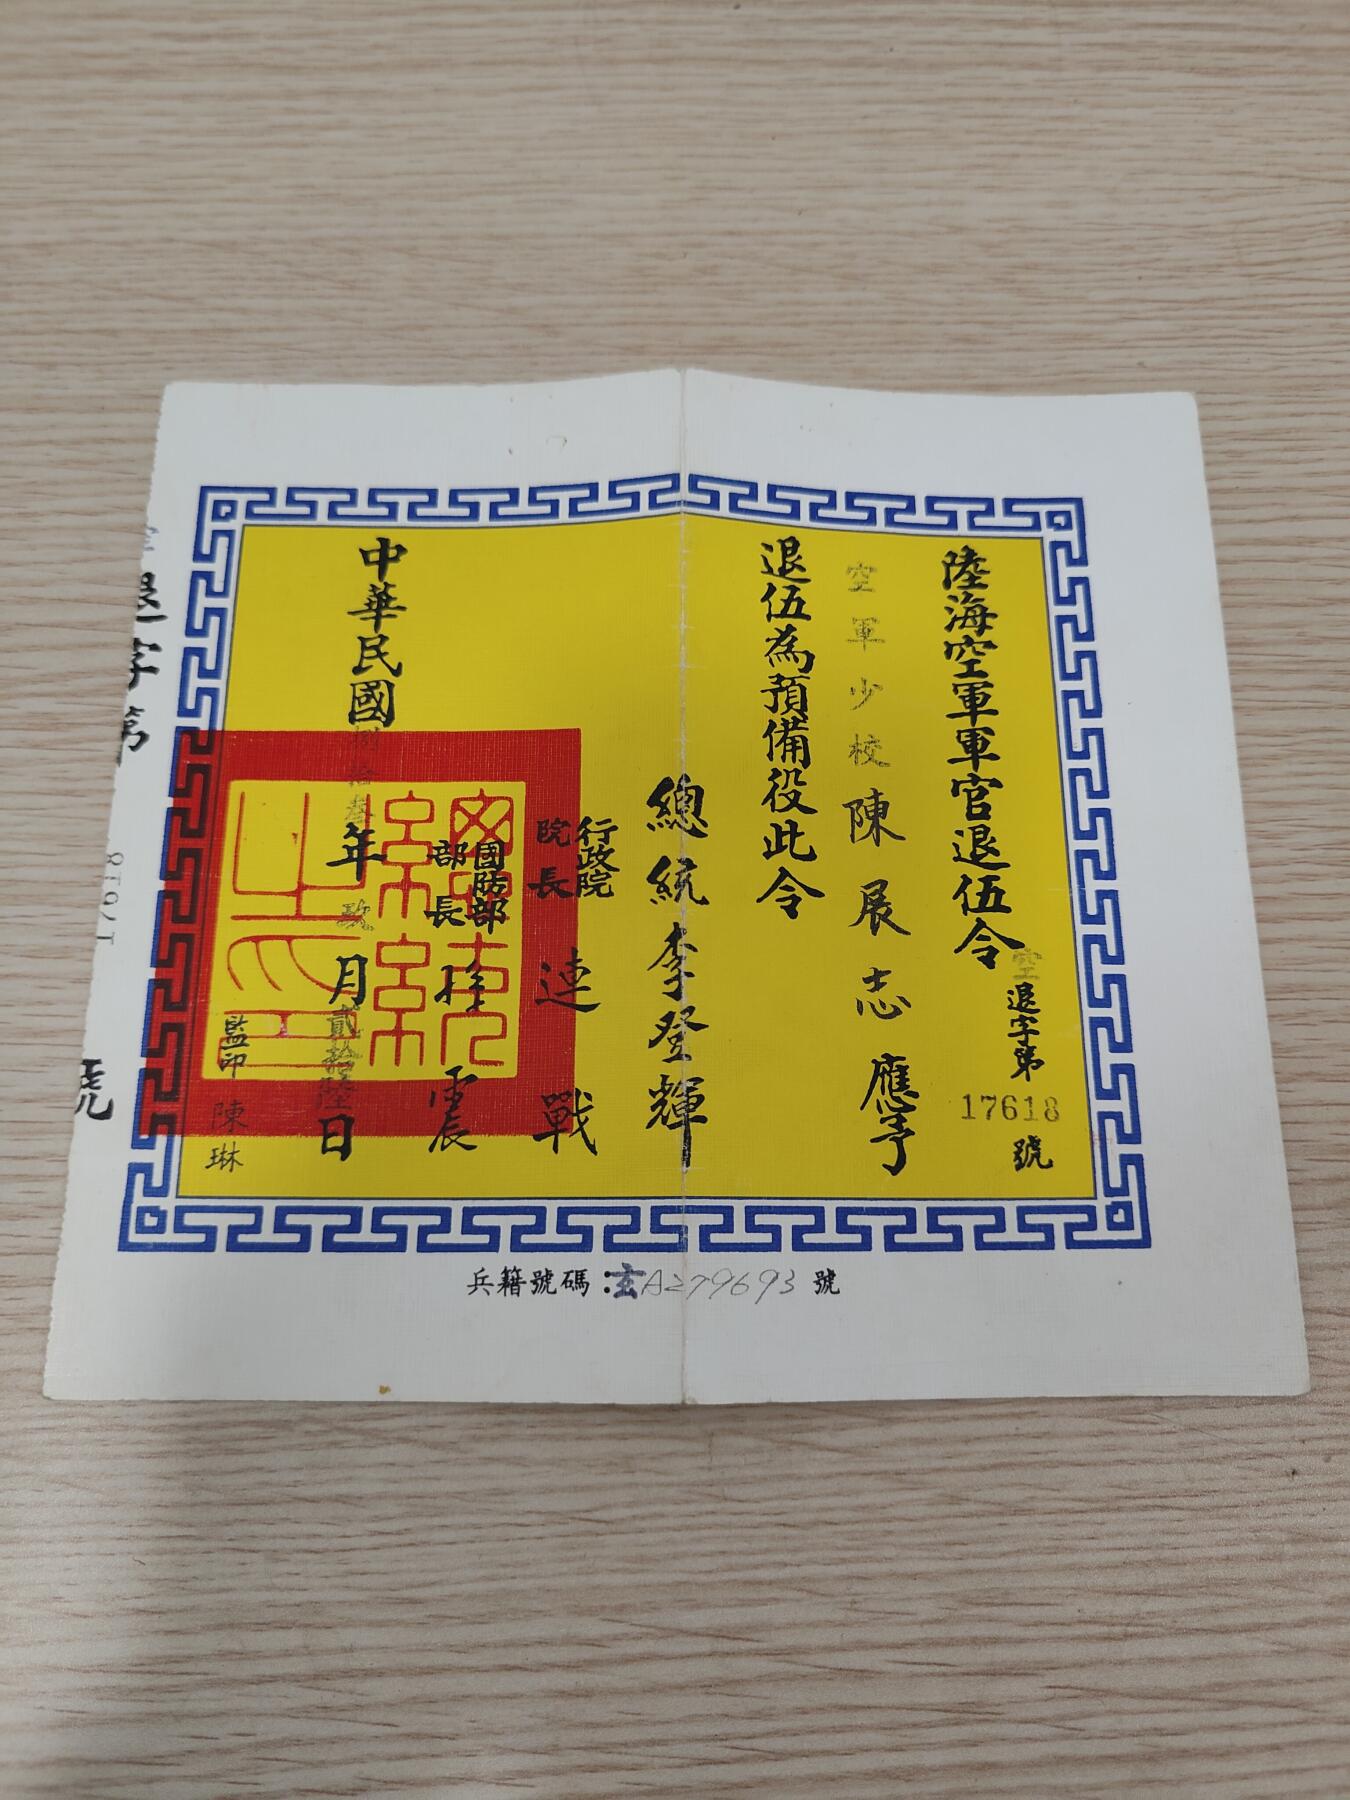 陸海空軍軍官退伍令
空退字第17618號
空軍少校陳展志應予
退伍為預備役此令
總統李登輝
行政院院長連戰
國防部部長孫震
中華民國捌拾叁年玖月貳拾陸日
監印陳琳
總統之印
退字第
號
兵籍號碼:玄A279693號